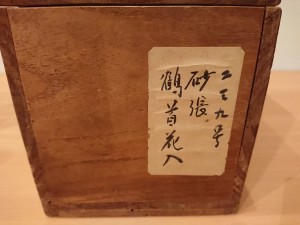 二三九号
砂張
鶴首花入